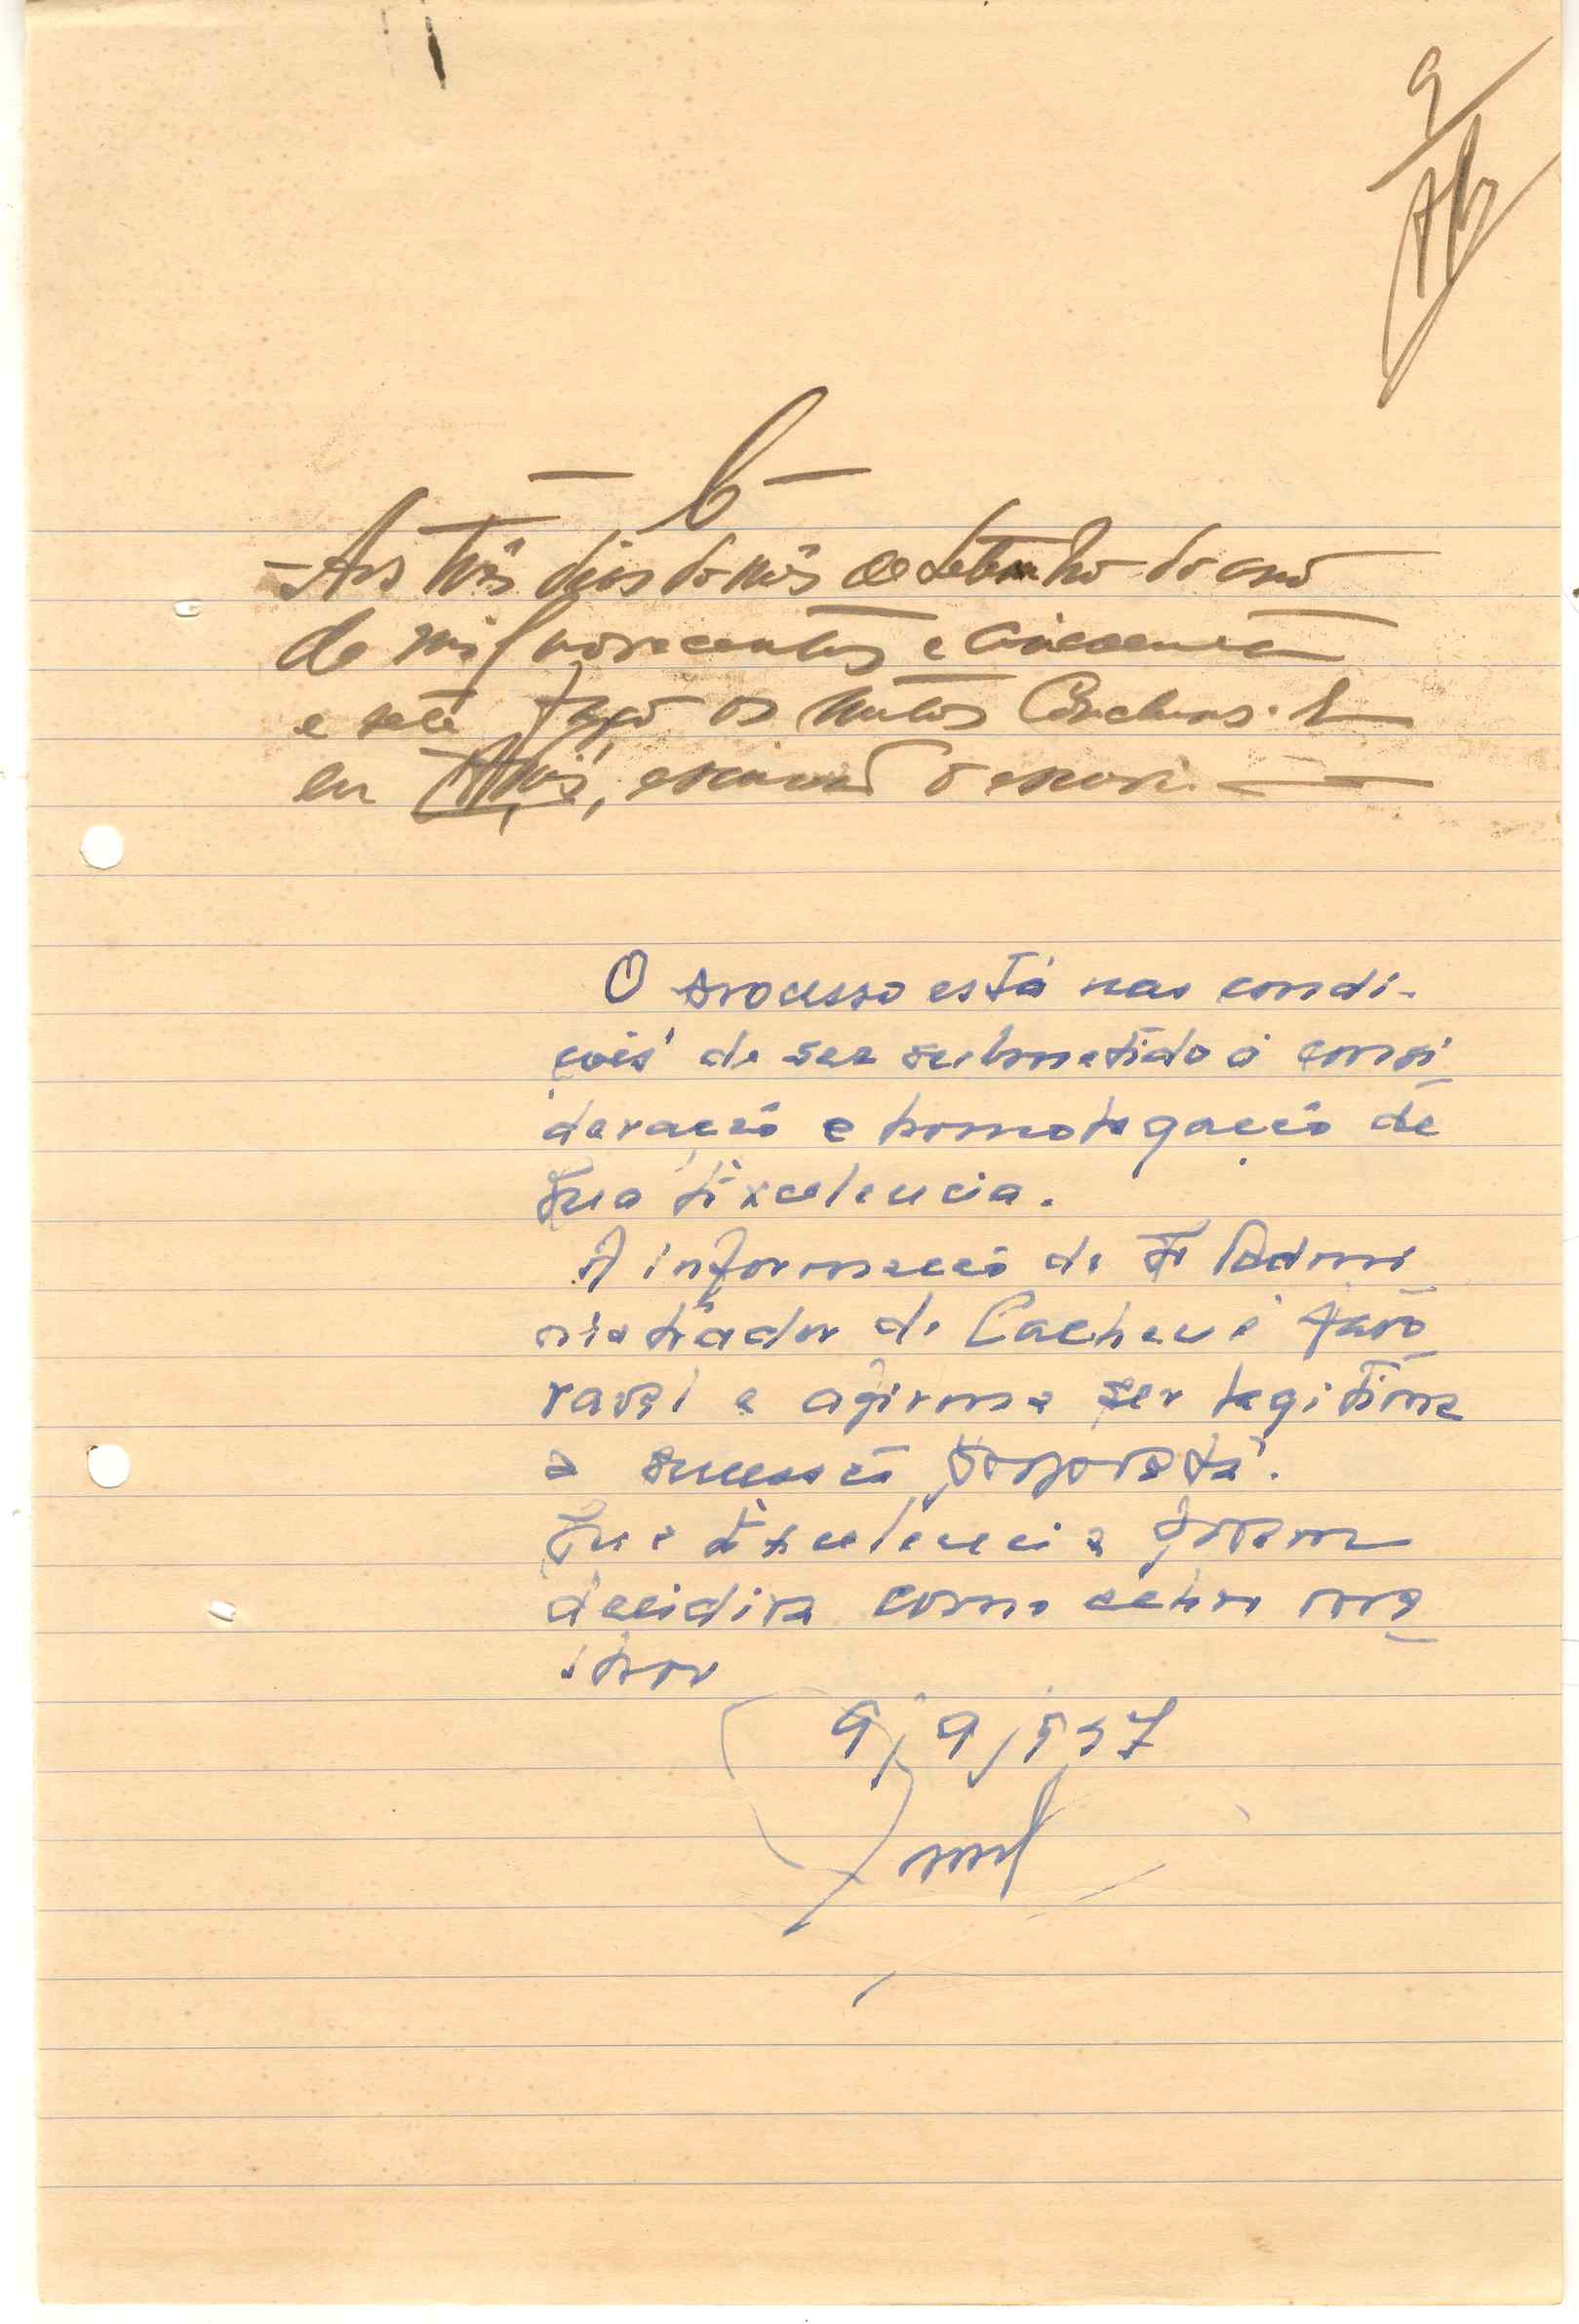 9
— C —
— Aos três dias do mês de Setembro do ano
de mil novecentos e cincoenta
e sete faço os autos Conclusos. E
eu, escrivão o escrevi. —
O processo está nas condi-
ções de ser submetido à consi-
deração e homologação de
Sua Excelencia.
A informação do Sr Admi
nistrador de Cacheu é favo
ravel e afirma ser legitima
a sucessão proposta.
Sua Excelencia porem
decidirá como achar me
lhor
9/9/957